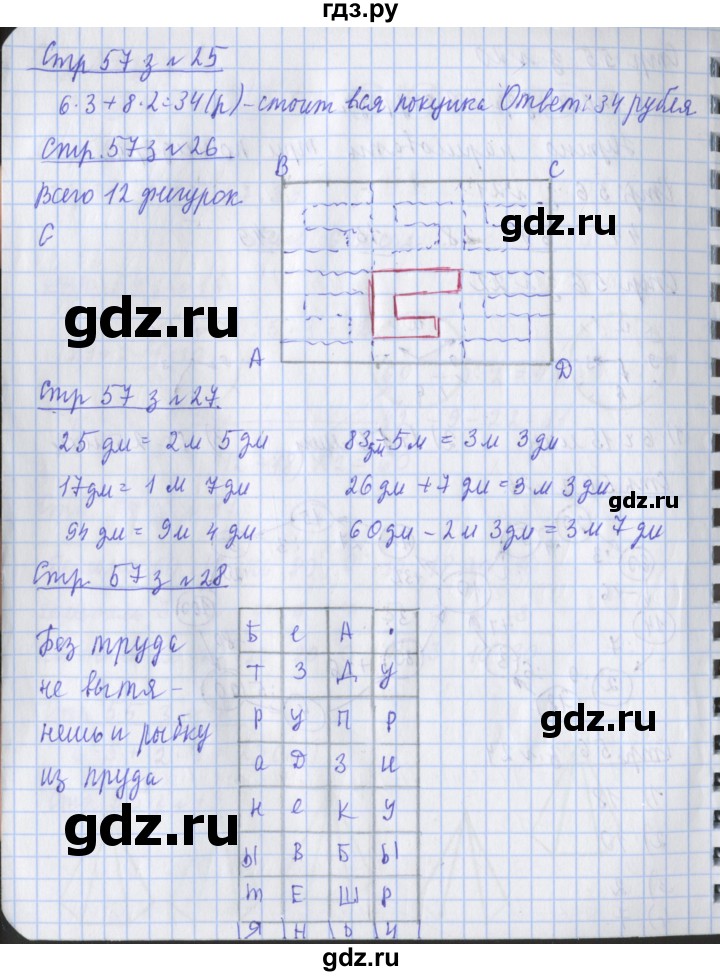 гдз.ру
Стр 57 з №25
6·3+8·2=34(р)-стоит вся покупка Ответ: 34 рубля
Стр. 57 з №26
Всего 12 фигурок
С
B C
gdz.ru
gdz.ru
A D
Стр 57 з №27.
25 дм = 2 м 5 дм 83дм-5м = 3м 3 дм
17дм = 1 м 7 дм 26 дм + 7 дм = 3 м 3 дм.
gdz.ru
94 дм = 9м 4 дм 60 дм - 2м 3дм = 3 м 7 дм
Стр. 57 з №28
Без труда
не вытя-
нешь и рыбку
из пруда
Б е А .
Т З Д У
Р У П Р
а Д З И
Н е К У
Ы В Б Ы
т Е Ш Р
Я Н Ь И
gdz.ru
gdz.ru
gdz.ru